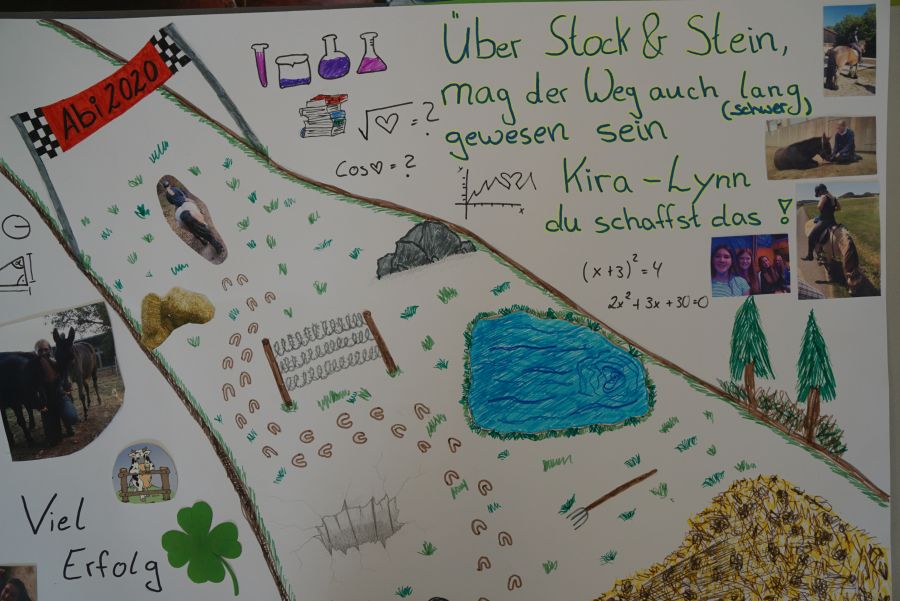 Über Stock & Stein,
mag der Weg auch lang
(schwer)
gewesen sein
Kira-Lynn
du schaffst das!
Abi 2020
√♡ = ?
Cos♡ = ?
(x+3)² = 4
2x² + 3x + 30 = 0
Viel
Erfolg